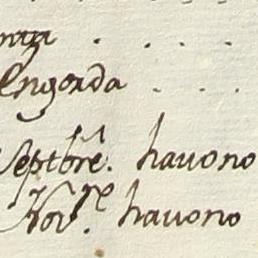 Engorda . . . .
Septbrē. hauono
Nov.re hauono